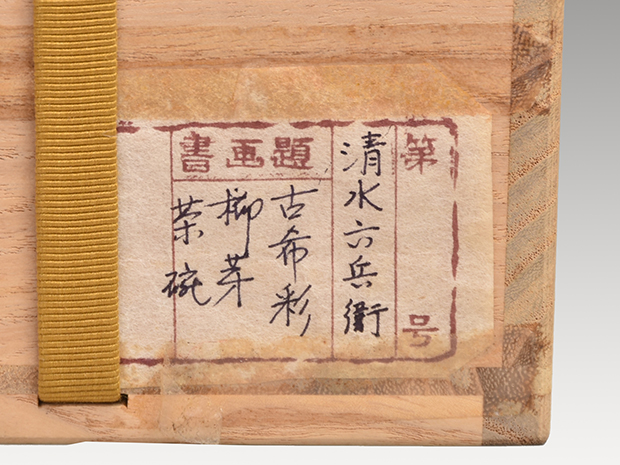 第 号
清水六兵衛
題画書
古希彩
柳芽
茶碗